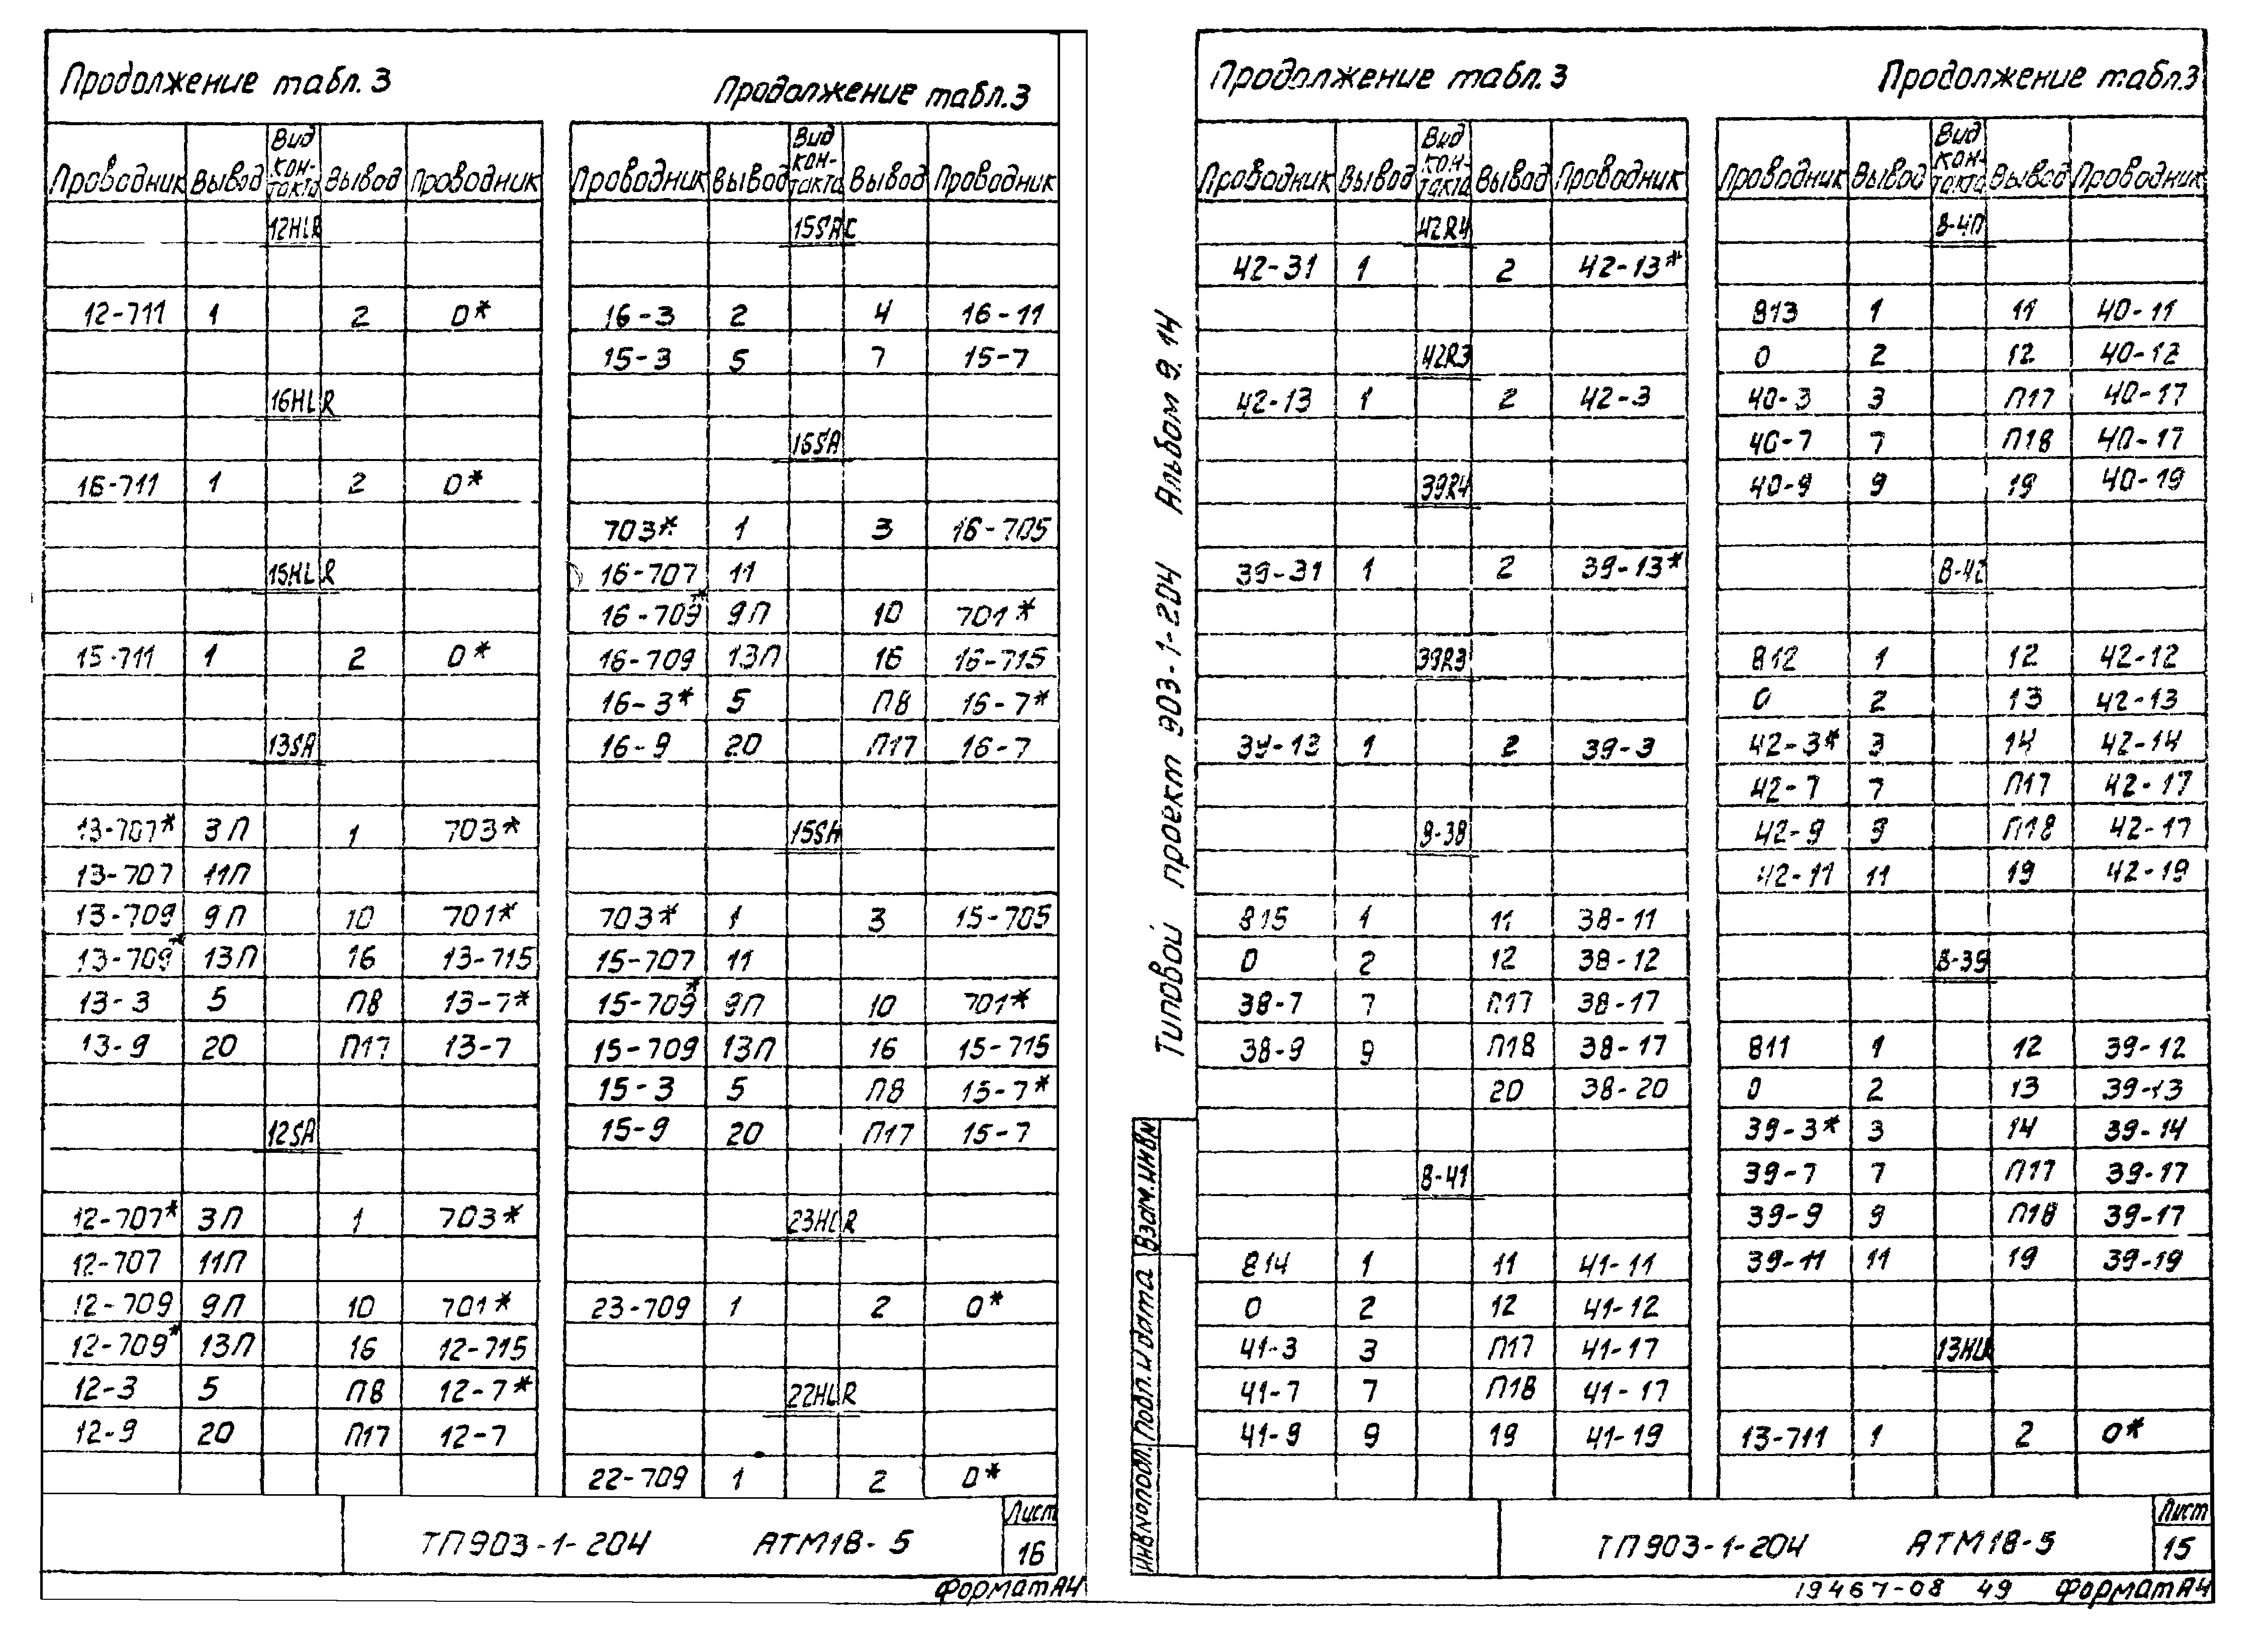 Продолжение табл.3
Проводник Вывод Вид кон-такта Вывод Проводник
12HLR
12-711 1 2 0*
16HLR
16-711 1 2 0*
15HLR
15-711 1 2 0*
13SA
13-707* 3П 1 703*
13-707 11П
13-709 9П 10 701*
13-709* 13П 16 13-715
13-3 5 П8 13-7*
13-9 20 П17 13-7
12SA
12-707* 3П 1 703*
12-707 11П
12-709 9П 10 701*
12-709* 13П 16 12-715
12-3 5 П8 12-7*
12-9 20 П17 12-7
Продолжение табл.3
Проводник Вывод Вид кон-такта Вывод Проводник
15SAC
16-3 2 4 16-11
15-3 5 7 15-7
16SA
703* 1 3 16-705
16-707 11
16-709* 9П 10 701*
16-709 13П 16 16-715
16-3* 5 П8 16-7*
16-9 20 П17 16-7
15SA
703* 1 3 15-705
15-707 11
15-709* 9П 10 701*
15-709 13П 16 15-715
15-3 5 П8 15-7*
15-9 20 П17 15-7
23HLR
23-709 1 2 0*
22HLR
22-709 1 2 0*
ТП903-1-204 АТМ18-5
Лист
16
Формат А4
Типовой проект 903-1-204 Альбом 9.14
Взам.инв№
Подп. и дата
Инв№подл.
Продолжение табл.3
Проводник Вывод Вид кон-такта Вывод Проводник
42R4
42-31 1 2 42-13*
42R3
42-13 1 2 42-3
39R4
39-31 1 2 39-13*
39R3
39-13 1 2 39-3
В-38
815 1 11 38-11
0 2 12 38-12
38-7 7 П17 38-17
38-9 9 П18 38-17
20 38-20
В-41
814 1 11 41-11
0 2 12 41-12
41-3 3 П17 41-17
41-7 7 П18 41-17
41-9 9 19 41-19
Продолжение табл.3
Проводник Вывод Вид кон-такта Вывод Проводник
В-40
813 1 11 40-11
0 2 12 40-12
40-3 3 П17 40-17
40-7 7 П18 40-17
40-9 9 19 40-19
В-42
812 1 12 42-12
0 2 13 42-13
42-3* 3 14 42-14
42-7 7 П17 42-17
42-9 9 П18 42-17
42-11 11 19 42-19
В-39
811 1 12 39-12
0 2 13 39-13
39-3* 3 14 39-14
39-7 7 П17 39-17
39-9 9 П18 39-17
39-11 11 19 39-19
13HLR
13-711 1 2 0*
ТП903-1-204 АТМ18-5
Лист
15
19467-08 49 Формат А4